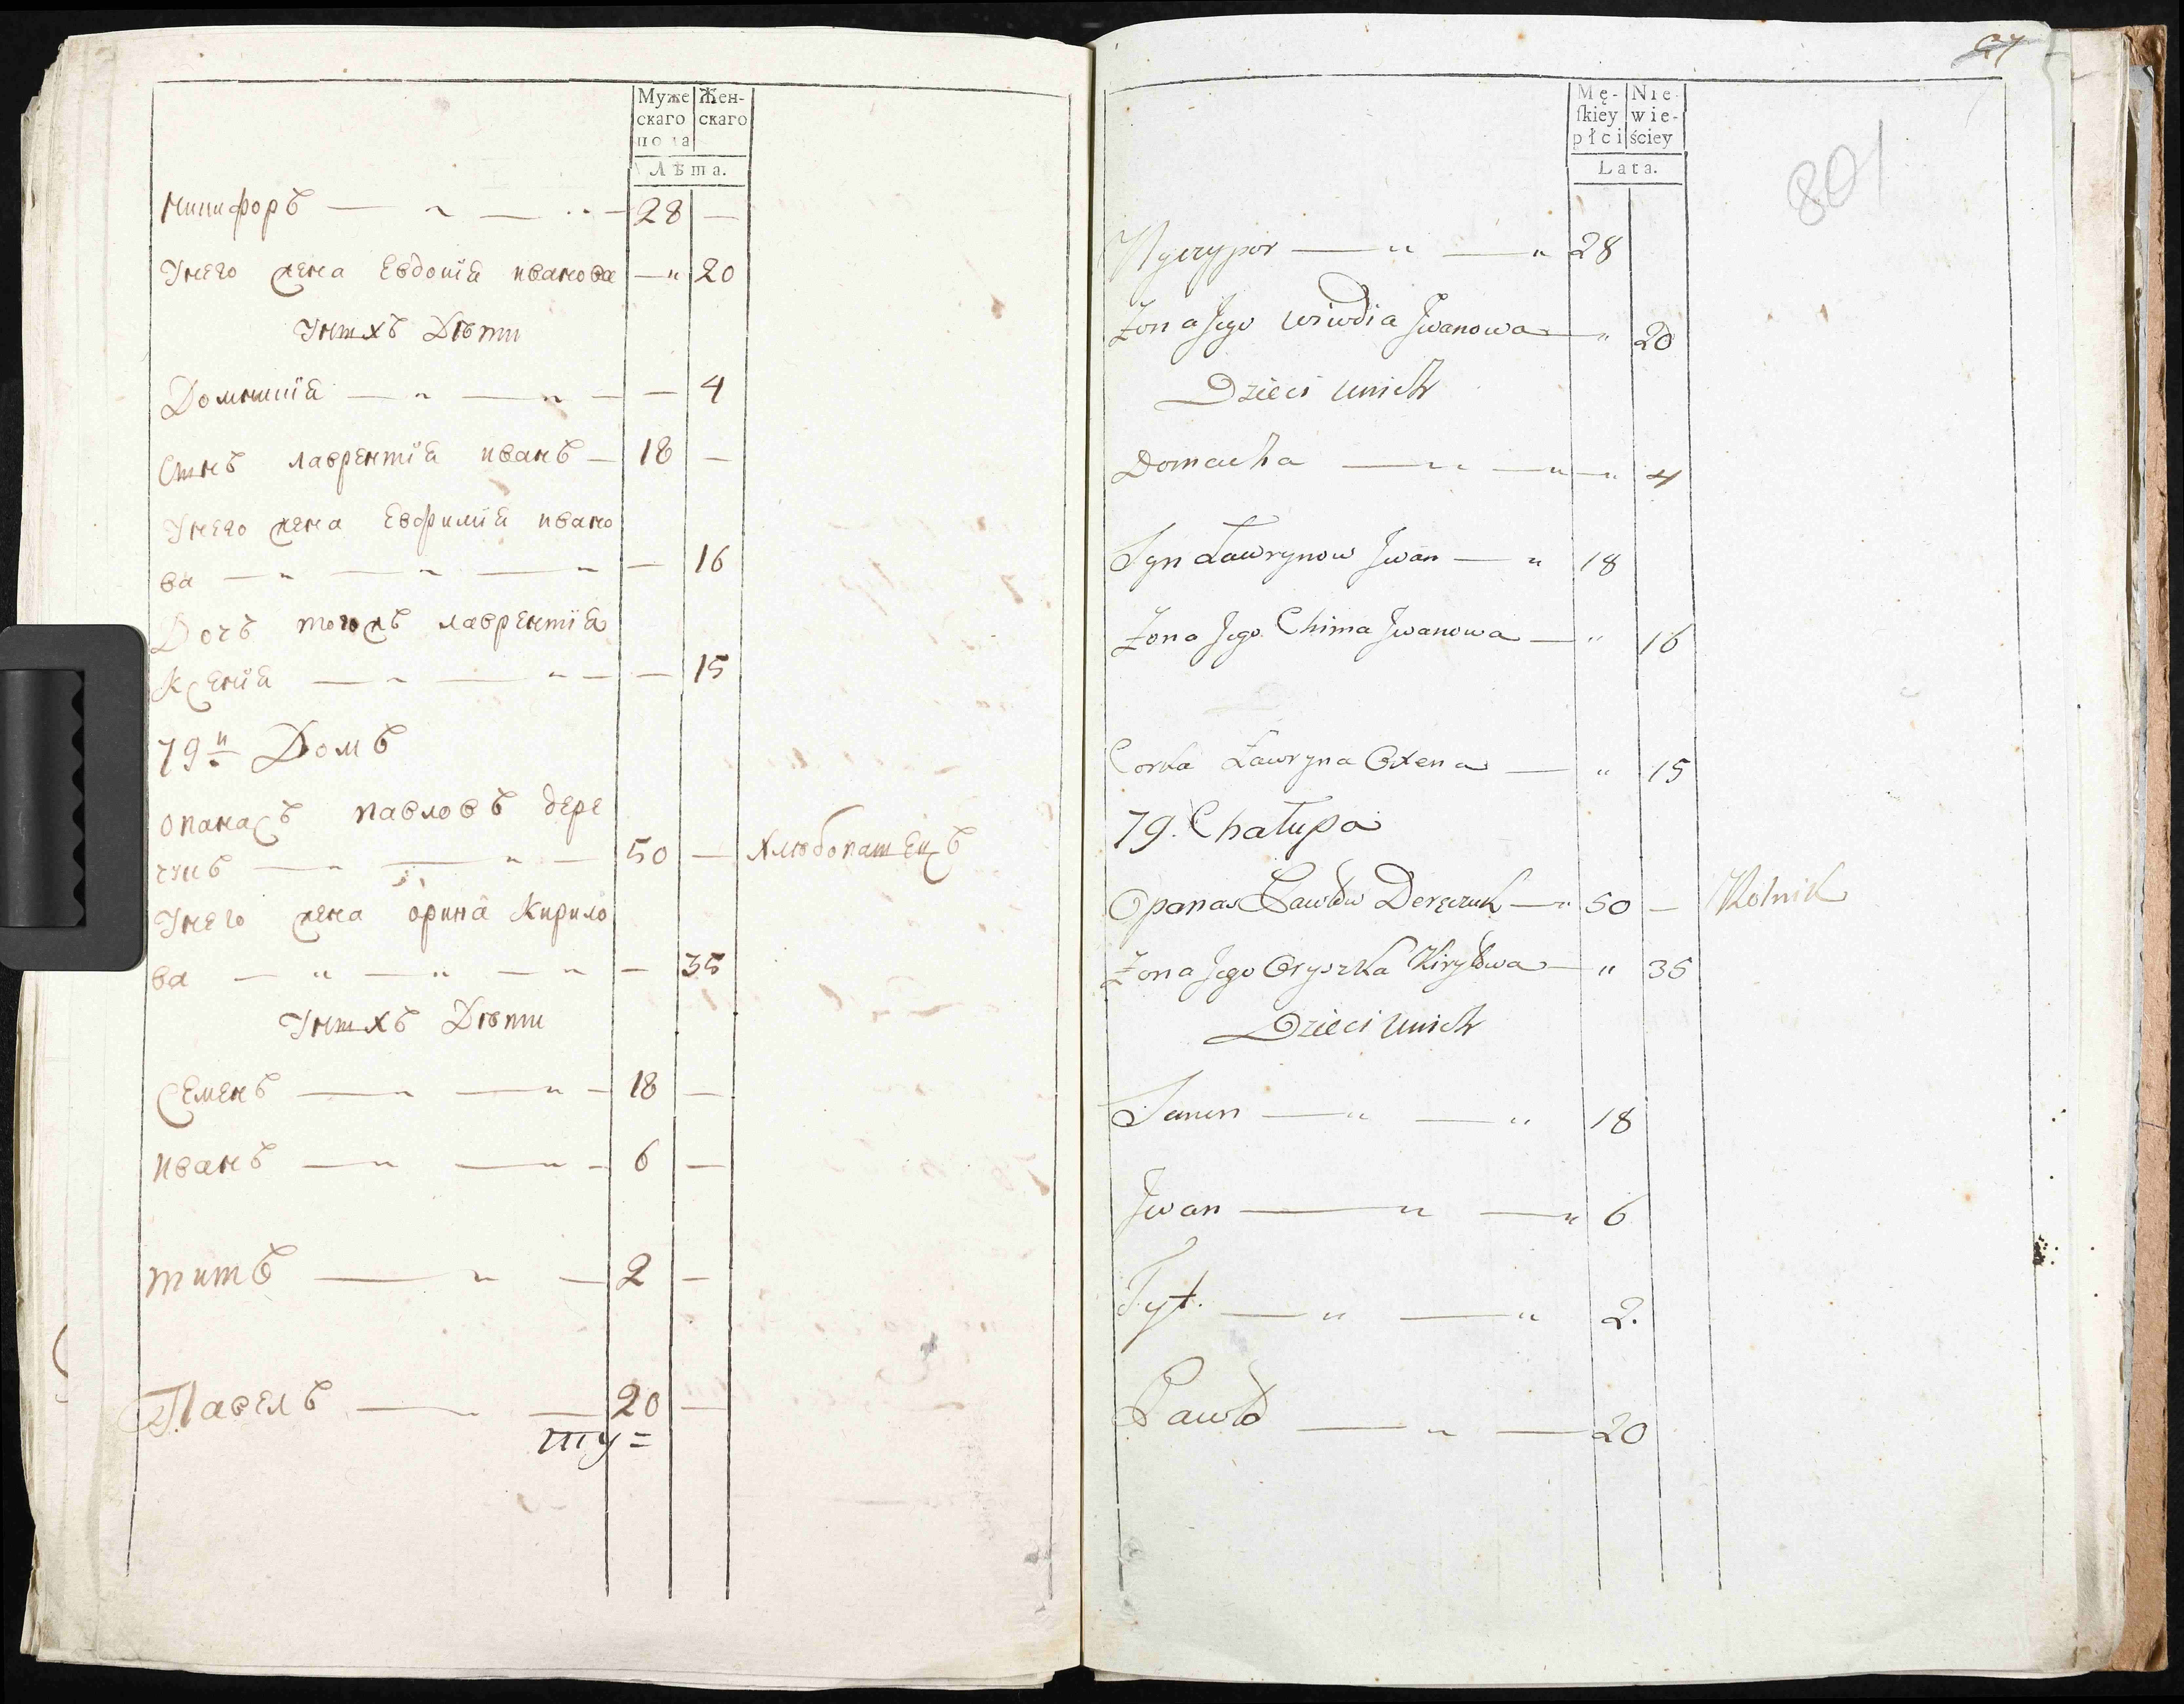 Муже Жен-
скаго скаго
пола
Лѣта.
Никифоръ — „ — „ — 28 —
Унего жена Евдокїя иванова — „ 20
Унихъ Дѣти
Домникїя — „ — „ — — 4
Сынъ лаврентїя иванъ — 18 —
Унего жена Евфимїя ивано
ва — „ — „ — „ — 16
Дочъ тогожъ лаврентїя
Ксенїя — „ — „ — — 15
79й Домъ
опанасъ павловъ дере
чукъ — „ — „ — 50 — хлѣбопашецъ
Унего жена орина Кирило
ва — „ — „ — „ — 35
Унихъ Дѣти
Семенъ — „ — „ — 18 —
иванъ — „ — „ — 6 —
титъ — „ — 2 —
Павелъ — „ — 20 —
ту=
27
801
Mę- Nie
ſkiey wie-
płci ściey
Lata.
Nyczypor — „ — „ 28
Zona Jego Wiwdia Jwanowa — „ 20
Dzieci unich
Domacha — „ — „ — „ 4
Syn Ławrynow Jwan — „ 18
Zona Jego Chima Jwanowa — „ 16
Corka Ławryna Oxena — „ 15
79. Chałupa
Opanas Pawłow Dereczuk — „ 50 — Rolnik
Zona Jego Oryszka Kiryłowa — „ 35
Dzieci unich
Semen — „ — „ 18
Jwan — „ — „ 6
Tyt. — „ — „ 2.
Pawło — „ — 20